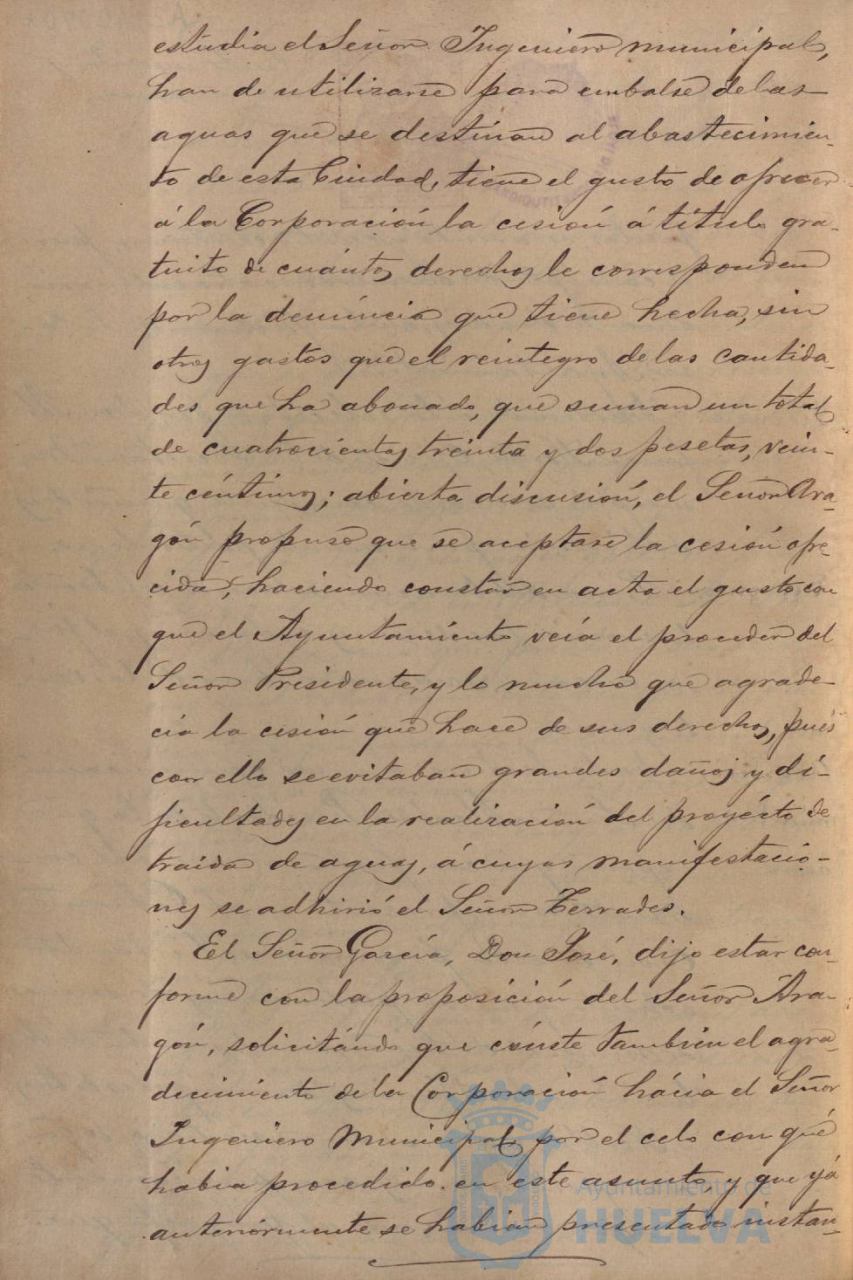 estudia el Señor Ingeniero municipal,
han de utilizarse para embalse de las
aguas que se destinan al abastecimien-
to de esta Ciudad, tiene el gusto de ofrecer
á la Corporación la cesión á título gra-
tuito de cuántos derechos le corresponden
por la denúncia que tiene hecha, sin
otros gastos que el reintegro de las cantida-
des que ha abonado, que suman un total
de cuatrocientas treinta y dos pesetas, vein-
te céntimos; abierta discusión, el Señor Ara-
gón propuso que se aceptase la cesión ofre-
cida, haciendo constar en acta el gusto con
que el Ayuntamiento veía el proceder del
Señor Presidente, y lo mucho que agrade-
cía la cesión que hace de sus derechos, pués
con ello se evitaban grandes daños y di-
ficultades en la realización del proyécto de
traida de aguas, á cuyas manifestacio-
nes se adhirió el Señor Terrades.
El Señor García, Don José, dijo estar con-
forme con la proposición del Señor Ara-
gón, solicitándo que cónste también el agra-
decimiento de la Corporación hácia el Señor
Ingeniero Municipal por el celo con qué
habia procedido en este asunto y que yá
anteriórmente se habian presentado instan-
Ayuntamiento de
HUELVA